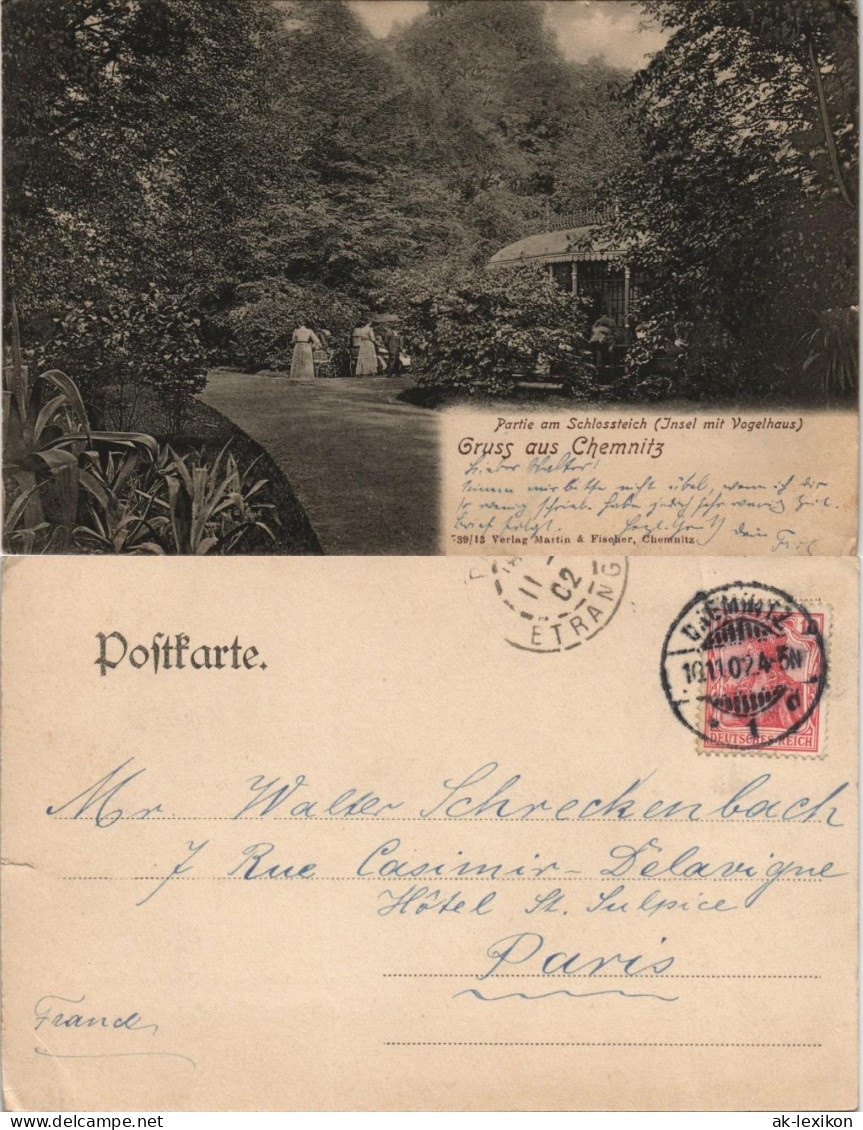 Partie am Schlossteich (Insel mit Vogelhaus)
Gruss aus Chemnitz
Lieber Walter!
Nimm mir bitte nicht übel, wenn ich dir
so wenig schreibe. habe jedoch sehr wenig Zeit.
Brief folgt. Herzl. Gruß dein
739/13 Verlag Martin & Fischer, Chemnitz
11
02
ETRANG
Postkarte.
CHEMNITZ
10.11.02.4-5N
1 d
DEUTSCHES REICH
Mr. Walter Schreckenbach
7 Rue Casimir-Delavigne
Hôtel St. Sulpice
Paris
ak-lexikon